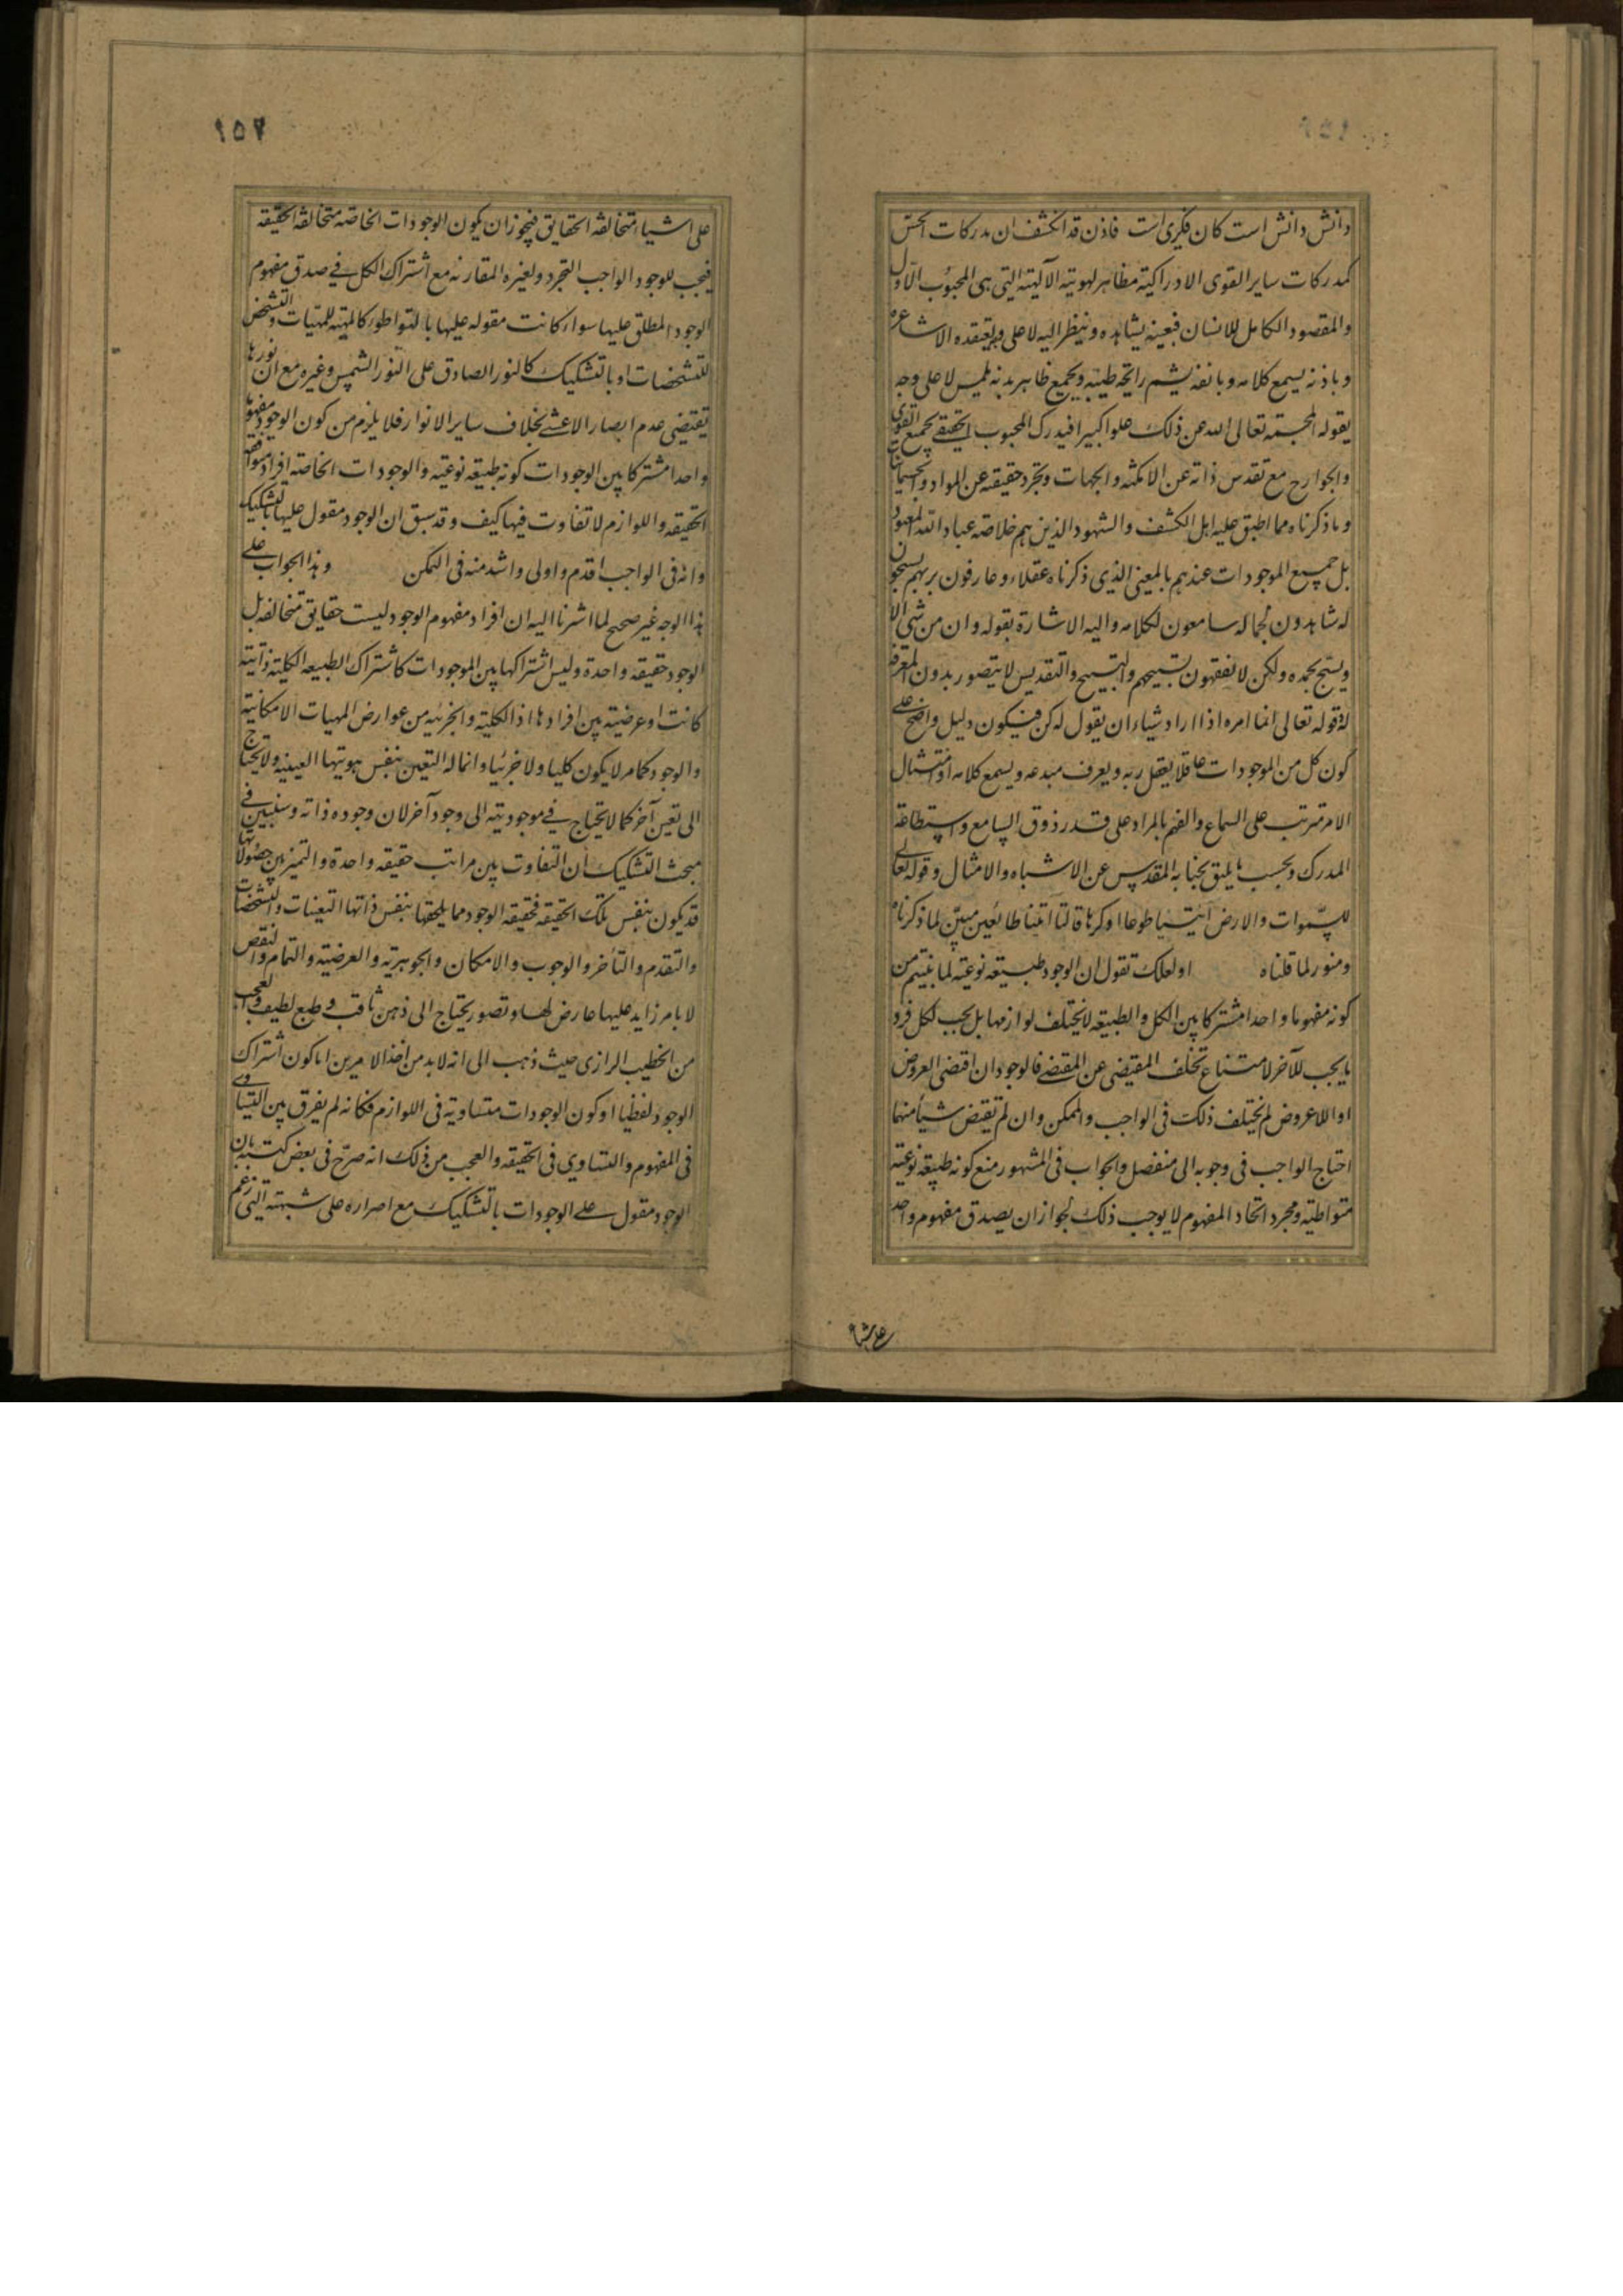 دانش دانش است كان فكرى است فاذن قد انكشف ان مدركات الحس
كمدركات ساير القوى الادراكية مظاهر لهوية الآلهية التى هى المحبوب الاول
والمقصود الكامل للانسان فبعينه يشاهده وينظر اليه لا على وجه يعتقده الاشاعره
وباذنه يسمع كلامه وبانفه يشم رائحة طيبه وبجميع ظاهر بدنه يلمس لا على وجه
يقوله المجسمة تعالى الله عن ذلك علوا كبيرا فيدرك المحبوب الحقيقى بجميع القوى
والجوارح مع تقدس ذاته عن الامكنه والجهات وتجرد حقيقته عن المواد والجسمانيات
وما ذكرناه مما اطبق عليه اهل الكشف والشهود الذين هم خلاصة عباد الله المعبود
بل جميع الموجودات عندهم بالمعنى الذى ذكرناه عقلاء وعارفون بربهم مسبحون
له شاهدون لجماله سامعون لكلامه واليه الاشارة بقوله وان من شئ الا
ويسبح بحمده ولكن لا تفقهون تسبيحهم والتسبيح والتقديس لا يتصور بدون المعرفة
له وقوله تعالى انما امره اذا اراد شياء ان يقول له كن فيكون دليل واضح على
كون كل من الموجودات عاقلا يعقل ربه ويعرف مبدعه ويسمع كلامه اذ امتثال
الامر مترتب على السماع والفهم بالمراد على قدر ذوق السامع واستطاعة
المدرك وبحسب ما يليق بجنابه المقدس عن الاشباه والامثال وقوله تعالى
للسموات والارض ائتيا طوعا او كرها قالتا اتينا طائعين مبين لما ذكرناه
ومنور لما قلناه او لعلك تقول ان الوجود طبيعة نوعية لما بينتم من
كونه مفهوما واحدا مشتركا بين الكل والطبيعه لا تختلف لوازمها بل يجب لكل فرد
ما يجب للآخر لامتناع تخلف المقتضى عن المقتضى فالوجود ان اقتضى العروض
او اللاعروض لم يختلف ذلك فى الواجب والممكن وان لم تقتض شيأ منهما
احتاج الواجب فى وجوبه الى منفصل والجواب فى المشهور منع كونه طبيعة نوعية
متواطية ومجرد اتحاد المفهوم لا يوجب ذلك لجواز ان يصدق مفهوم واحد
على اشيا
١٥٢
على اشياء متخالفة الحقايق فيجوز ان يكون الوجودات الخاصه متخالفة الحقيقه
فيجب للوجود الواجب التجرد ولغيره المقارنه مع اشتراك الكل فى صدق مفهوم
الوجود المطلق عليها سواء كانت مقوله عليها بالتواطؤ كالمهية للمهيات والتشخص
للتشخصات او بالتشكيك كالنور الصادق على النور الشمس وغيره مع ان نورها
تقتضى عدم ابصار الاعشى بخلاف ساير الانوار فلا يلزم من كون الوجود مفهوما
واحدا مشتركا بين الوجودات كونه طبيعه نوعية والوجودات الخاصة افراد متوافقه
الحقيقه واللوازم لا تفاوت فيها كيف وقد سبق ان الوجود مقول عليها بالتشكيك
وانه فى الواجب اقدم واولى واشد منه فى الممكن وهذا الجواب على
هذا الوجه غير صحيح لما اشرنا اليه ان افراد مفهوم الوجود ليست حقايق متخالفه بل
الوجود حقيقه واحدة وليس اشتراكها بين الموجودات كاشتراك الطبيعه الكلية ذاتية
كانت او عرضية بين افرادها اذ الكلية والجزئيه من عوارض المهيات الامكانية
والوجود كما مر لا يكون كليا ولا جزئيا وانما له التعين بنفس هويتها العينيه ولا يحتاج
الى تعين آخر كما لا يحتاج فى موجوديته الى وجود آخر لان وجوده ذاته وسنبين فى
مبحث التشكيك ان التفاوت بين مراتب حقيقه واحدة والتميز بين حصولاتها
قد يكون بنفس تلك الحقيقه فحقيقه الوجود مما يلحقها بنفس ذاتها التعينات والتشخصات
والتقدم والتأخر والوجوب والامكان والجوهرية والعرضية والتمام والنقص
لا بامر زايد عليها عارض لها وتصور يحتاج الى ذهن ثاقب وطبع لطيف والعجب
من الخطيب الرازى حيث ذهب الى انه لا بد من اخذ الامرين اما كون اشتراك
الوجود لفظيا او كون الوجودات متساوية فى اللوازم فكانه لم يفرق بين التساوى
فى المفهوم والتساوى فى الحقيقه والعجب من ذلك انه صرح فى بعض كتبه بان
الوجود مقول على الوجودات بالتشكيك مع اصراره على شبهته التى زعم